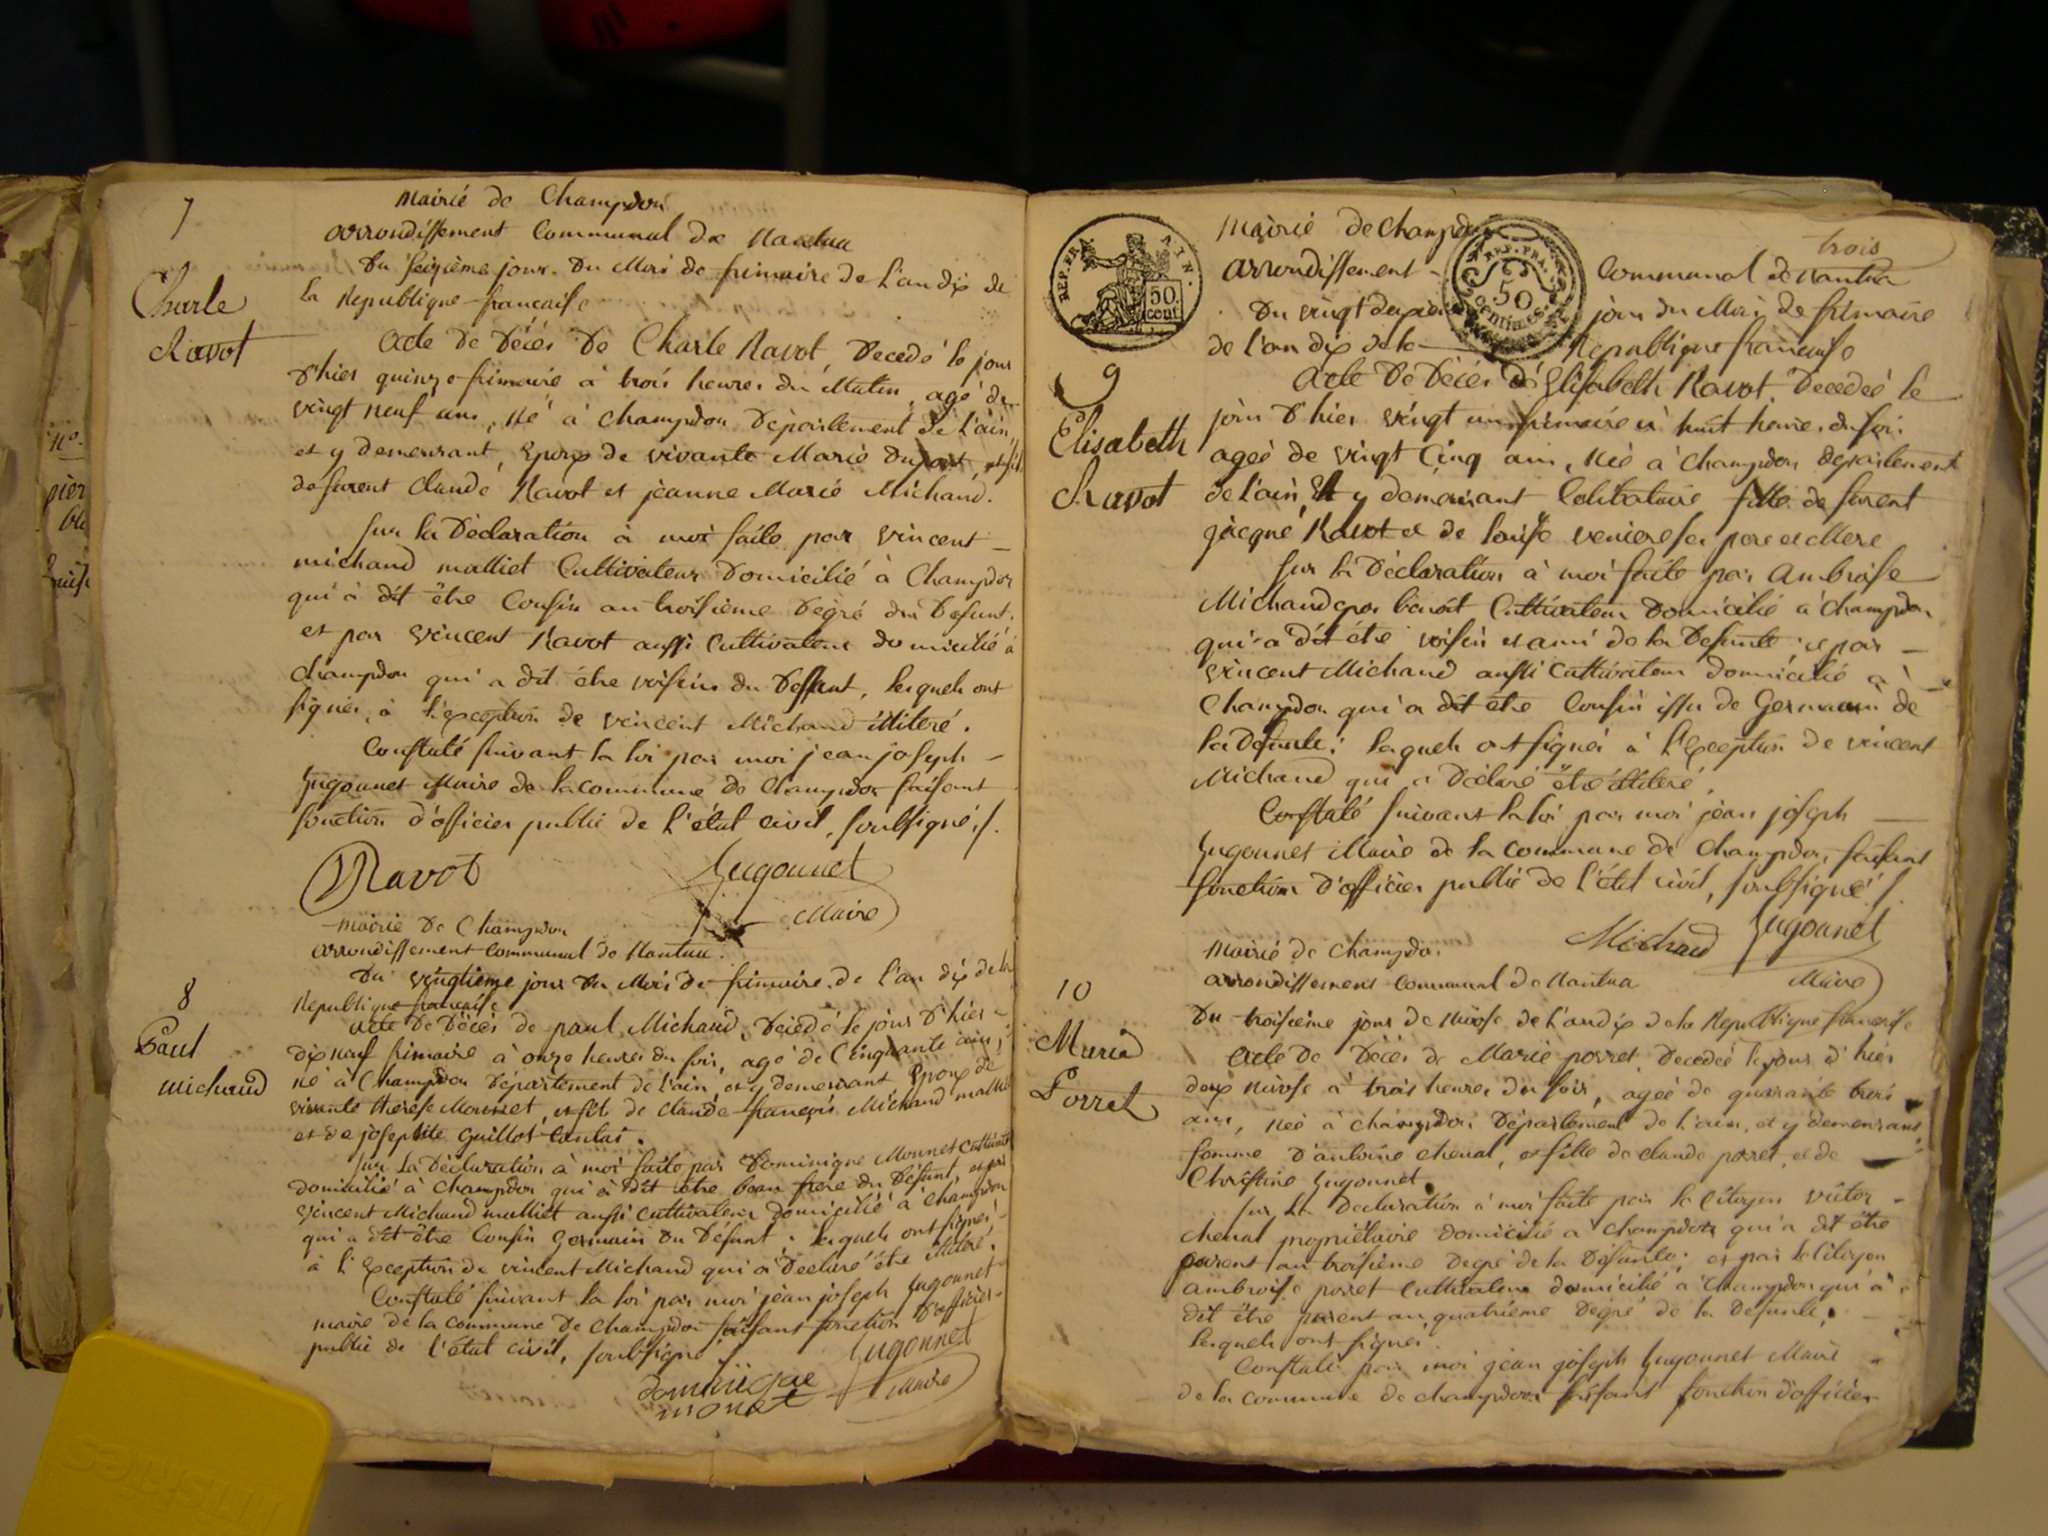 7
Charle
Ravot
Mairié de Champdor
arrondissement Communal de Nantua
Du seizième jour du Mois de frimaire de l'an dix de
la Republique française
Acte De Décés De Charle Ravot, Decedé le jour
d'hier quinze frimaire à trois heures du Matin, agé de
vingt neuf ans, Né à champdor Département de l'ain,
et y demeurant, Epoux de vivante Marie
defunt Claude Ravot et jeanne Marie Michaud.
Sur la Déclaration à moi faite par vincent
michaud malliet Cultivateur Domicilié à Champdor
qui à dit être Cousin au troisième Dégré du Defunt,
et par vincent Ravot aussi Cultivateur domicilié à
Champdor qui a dit être voisin du Deffunt, lesquels ont
signés, à l'exception de vincent Michaud illiteré.
Constaté suivant la loi par moi jean joseph
Gugonnet Maire de la commune de Champdor faisant
fonction d'officier public de l'état civil, soubsigné ./.
Ravot
Gugonnet
Maire
8
Paul
Michaud
Mairie De Champdor
arrondissement Communal de Nantua.
Du vingtieme jour du Mois de frimaire de l'an dix de la
Republique française
Acte De Décés de paul Michaud, Décédé le jour d'hier
dix neuf frimaire à onze heures du soir, agé de Cinquante ans,
né à Champdor Département de l'ain, et y demeurant Epoux de
vivante thérése Mounet, et fils de claude françois Michaud malliet
et de josephte Guillot
Sur La Déclaration à moi faite par Dominique Mounet Cultivat
domicilié à Champdor qui à dit être beau frere du Défunt, et par
vincent Michaud malliet aussi cultivateur domicilié à Champdor
qui a dit être Cousin Germain du Défunt; lesquels ont signés,
à l'Exception de vincent Michaud qui à Declaré être illiteré.
Constaté suivant la loi par moi jean joseph Gugonnet
maire de la commune De champdor faisant fonction D'officier
public de l'état civil, soubsigné ./.
Dominique
monet
Gugonnet
Maire
trois
REP. FRA.
AIN.
50.
cent
REP. FRA.
50
centimes
Mairié de Champdor
arrondissement Communal de Nantua
Du vingt deuxieme jour du Mois de frimaire
de l'an dix de la Republique française
9
Elisabeth
Ravot
Acte De Décés d'Elisabeth Ravot, Decedeé le
jour d'hier vingt un frimaire à huit heures du soir
ageé de vingt Cinq ans, Neé à champdor departement
de l'ain, Et y demeurant Celibataire fille de furent
jacque Ravot et de louise veniere ses pere et Mere
Sur la Déclaration à moi faite par Ambroise
Michaud benoit Cultivateur Domicilié à champdor
qui a dit être voisin et ami de la Defunte, et par
vincent Michaud aussi Cultivateur domicilié à
Champdor qui a dit être Cousin issu de Germain de
la Defunte; lesquels ont signés à l'Exception de vincent
Michaud qui a Déclaré être illiteré.
Constaté suivant la loi par moi jean joseph
Gugonnet Maire de la commune de champdor, faisant
fonction D'officier public de l'état civil, soubsigné ./.
Michaud
Gugonnet
Maire
10
Marie
Porret
Mairie de Champdor
arrondissement communal de Nantua
Du troisième jour de Nivose de l'an dix de la Republique francaise
Acte De Décés de Marie porret Decedeé le jour d'hier
deux nivose à trois heures du soir, ageé de quarante trois
ans, neé à champdor Département de l'ain, et y demeurant
femme d'antoine chenal, et fille de claude porret et de
Christine Gugonnet.
Sur La Déclaration à moi faite par le citoyen victor
chenal propriétaire domicilié a champdor qui a dit être
parent au troisième Degré de la Defunte; et par le Citoyen
Ambroise porret cultivateur domicilié à Champdor qui à
dit être parent au quatrième Degré de la Defunte,
lesquels ont signés.
Constaté par moi jean joseph Gugonnet Maire
de la commune de champdor faisant fonction d'officier